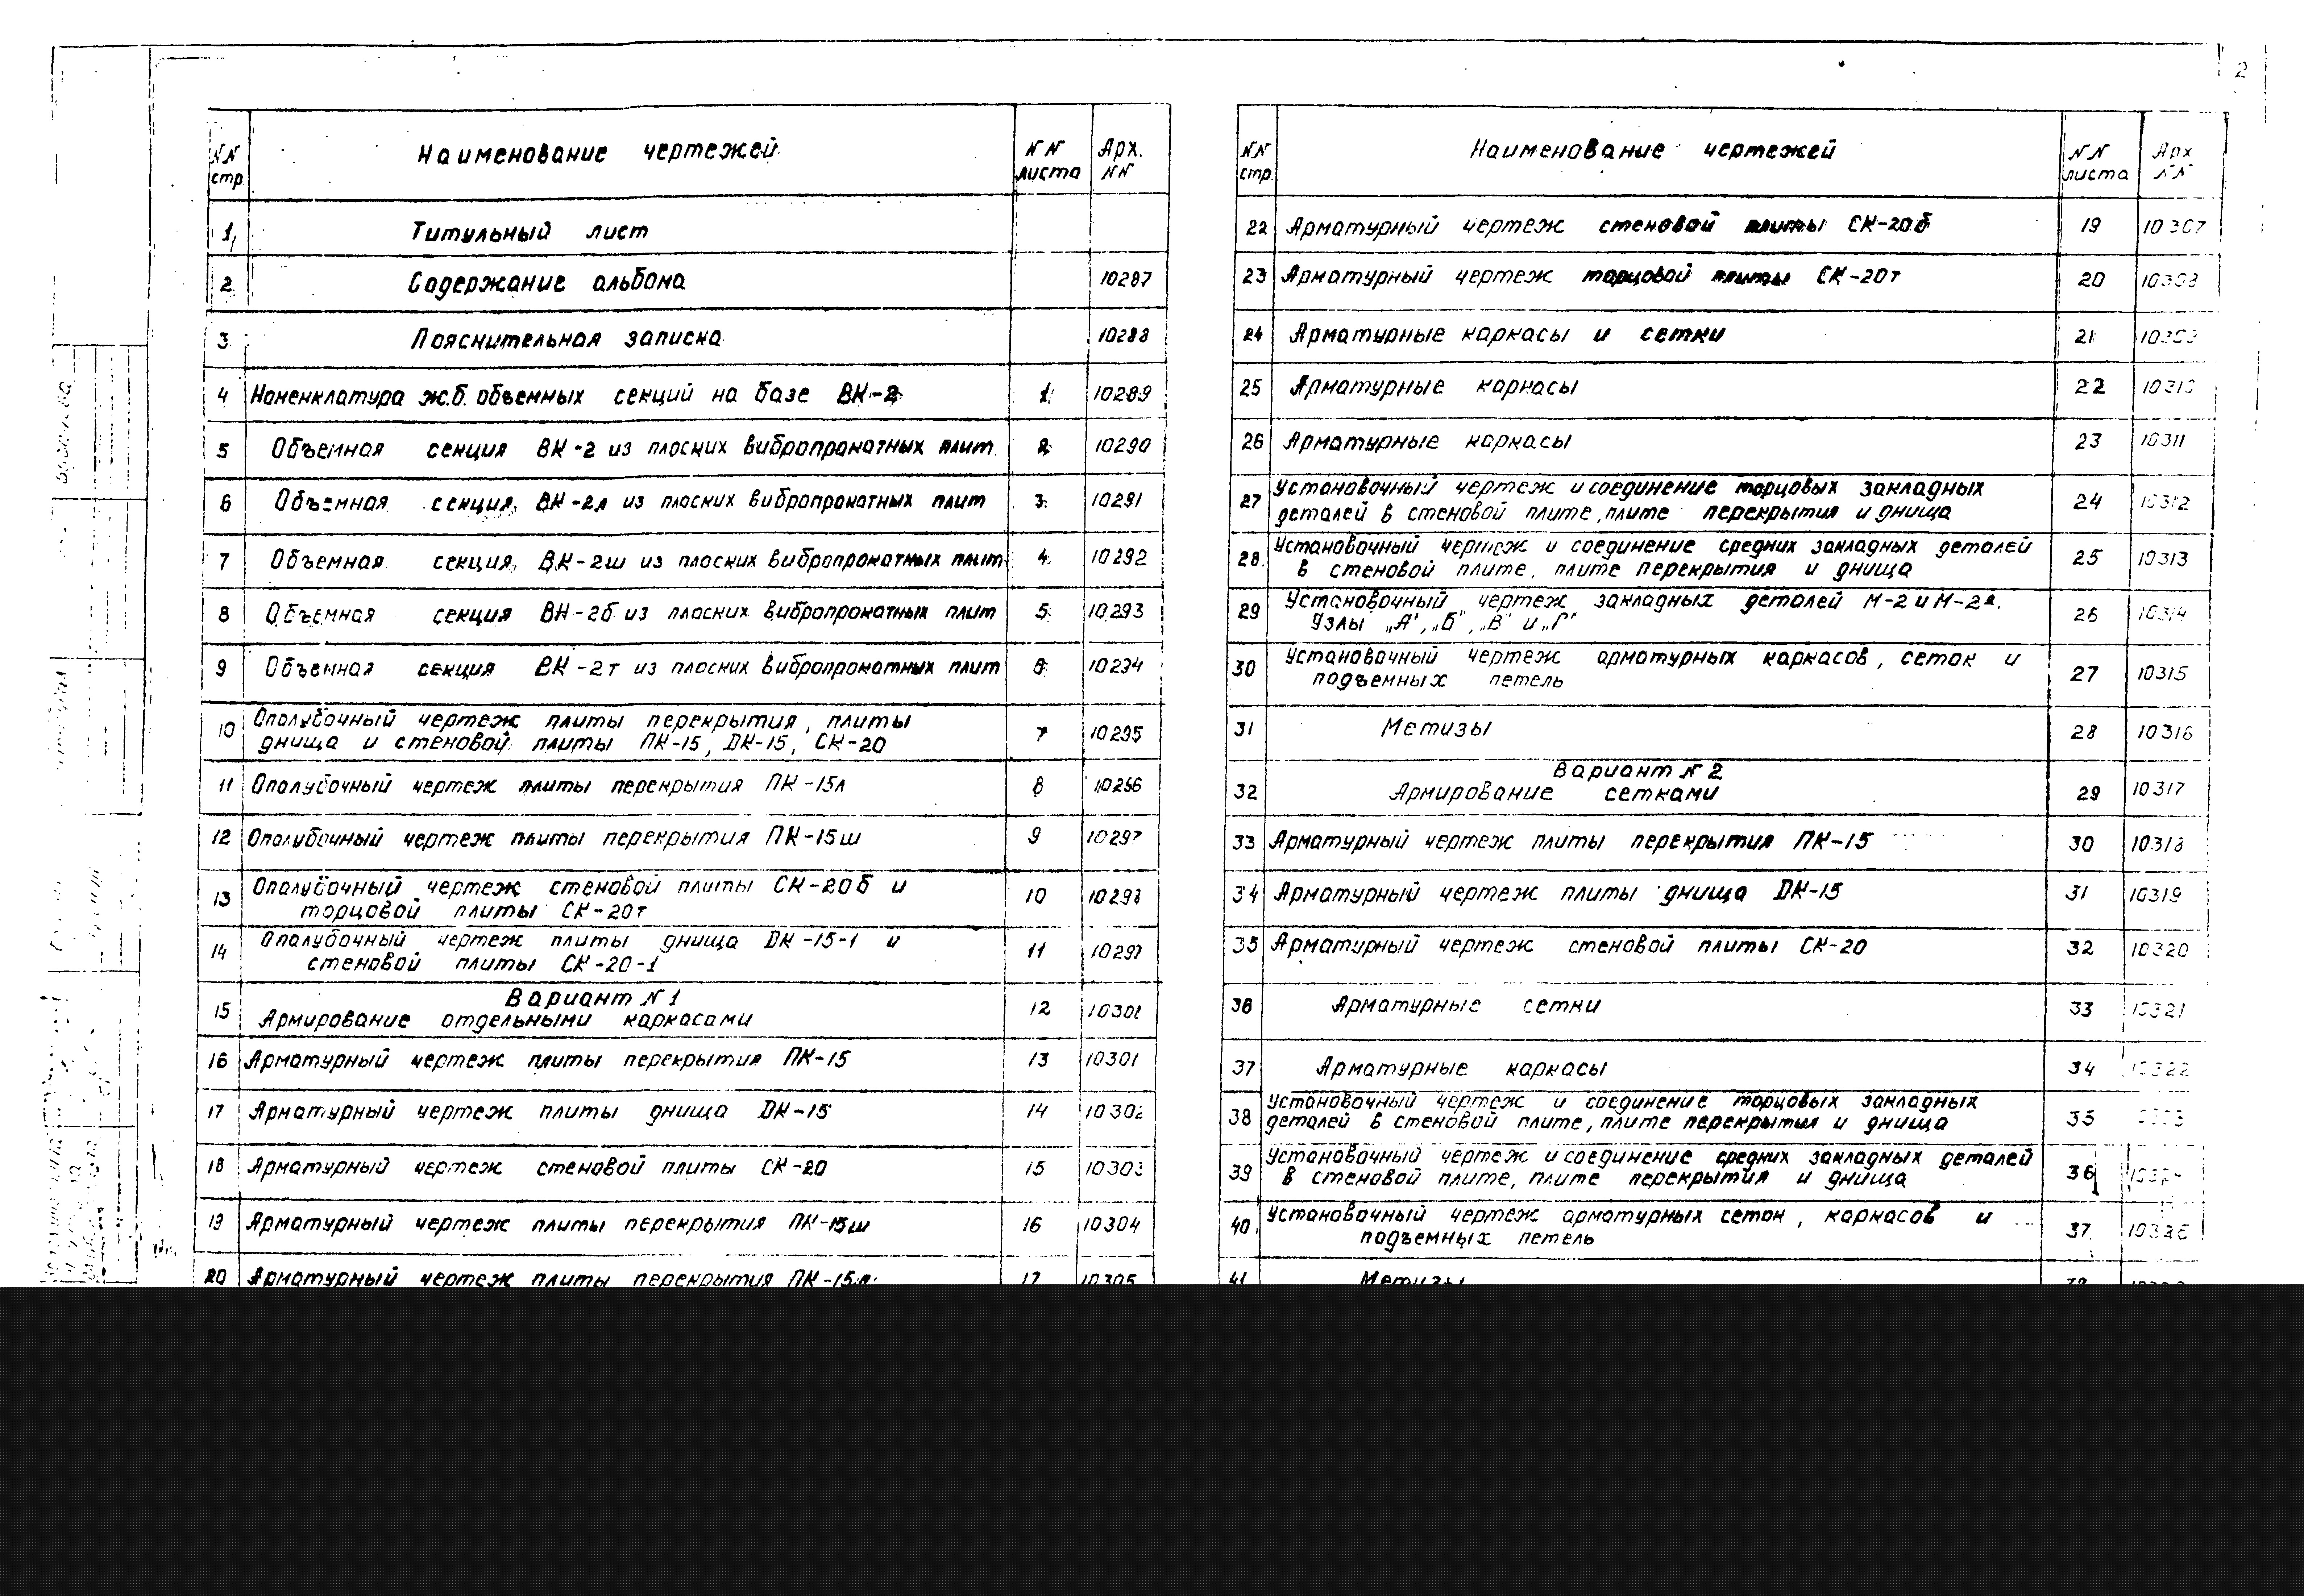 2
NN стр. Наименование чертежей NN листа Арх. NN
1 Титульный лист
2 Содержание альбома 10287
3 Пояснительная записка 10288
4 Номенклатура ж.б. объемных секций на базе ВК-2 1 10289
5 Объемная секция ВК-2 из плоских вибропрокатных плит 2 10290
6 Объемная секция ВК-2л из плоских вибропрокатных плит 3 10291
7 Объемная секция ВК-2ш из плоских вибропрокатных плит 4 10292
8 Объемная секция ВК-2б из плоских вибропрокатных плит 5 10293
9 Объемная секция ВК-2т из плоских вибропрокатных плит 6 10294
10 Опалубочный чертеж плиты перекрытия, плиты
днища и стеновой плиты ПК-15, DК-15, СК-20 7 10295
11 Опалубочный чертеж плиты перекрытия ПК-15л 8 10296
12 Опалубочный чертеж плиты перекрытия ПК-15ш 9 10297
13 Опалубочный чертеж стеновой плиты СК-20б и
торцовой плиты СК-20т 10 10298
14 Опалубочный чертеж плиты днища DК-15-1 и
стеновой плиты СК-20-1 11 10299
Вариант N1
15 Армирование отдельными каркасами 12
16 Арматурный чертеж плиты перекрытия ПК-15 13 10301
17 Арматурный чертеж плиты днища DК-15 14 10302
18 Арматурный чертеж стеновой плиты СК-20 15 10303
19 Арматурный чертеж плиты перекрытия ПК-15ш 16 10304
20 Арматурный чертеж плиты перекрытия ПК-15л 17 10305
NN стр. Наименование чертежей NN листа Арх NN
22 Арматурный чертеж стеновой плиты СК-20б 19 10307
23 Арматурный чертеж торцовой плиты СК-20т 20 10308
24 Арматурные каркасы и сетки 21 10309
25 Арматурные каркасы 22 10310
26 Арматурные каркасы 23 10311
27 Установочный чертеж и соединение торцовых закладных
деталей в стеновой плите, плите перекрытия и днища 24 10312
28 Установочный чертеж и соединение средних закладных деталей
в стеновой плите, плите перекрытия и днища 25 10313
29 Установочный чертеж закладных деталей М-2 и М-2а.
Узлы „А", „Б", „В" и „Г" 26 10314
30 Установочный чертеж арматурных каркасов, сеток и
подъемных петель 27 10315
31 Метизы 28 10316
Вариант N2
32 Армирование сетками 29 10317
33 Арматурный чертеж плиты перекрытия ПК-15 30 10318
34 Арматурный чертеж плиты днища DК-15 31 10319
35 Арматурный чертеж стеновой плиты СК-20 32 10320
36 Арматурные сетки 33 10321
37 Арматурные каркасы 34 10322
38 Установочный чертеж и соединение торцовых закладных
деталей в стеновой плите, плите перекрытия и днища 35
39 Установочный чертеж и соединение средних закладных деталей
в стеновой плите, плите перекрытия и днища 36 10324
40 Установочный чертеж арматурных сеток, каркасов и
подъемных петель 37
41 Метизы